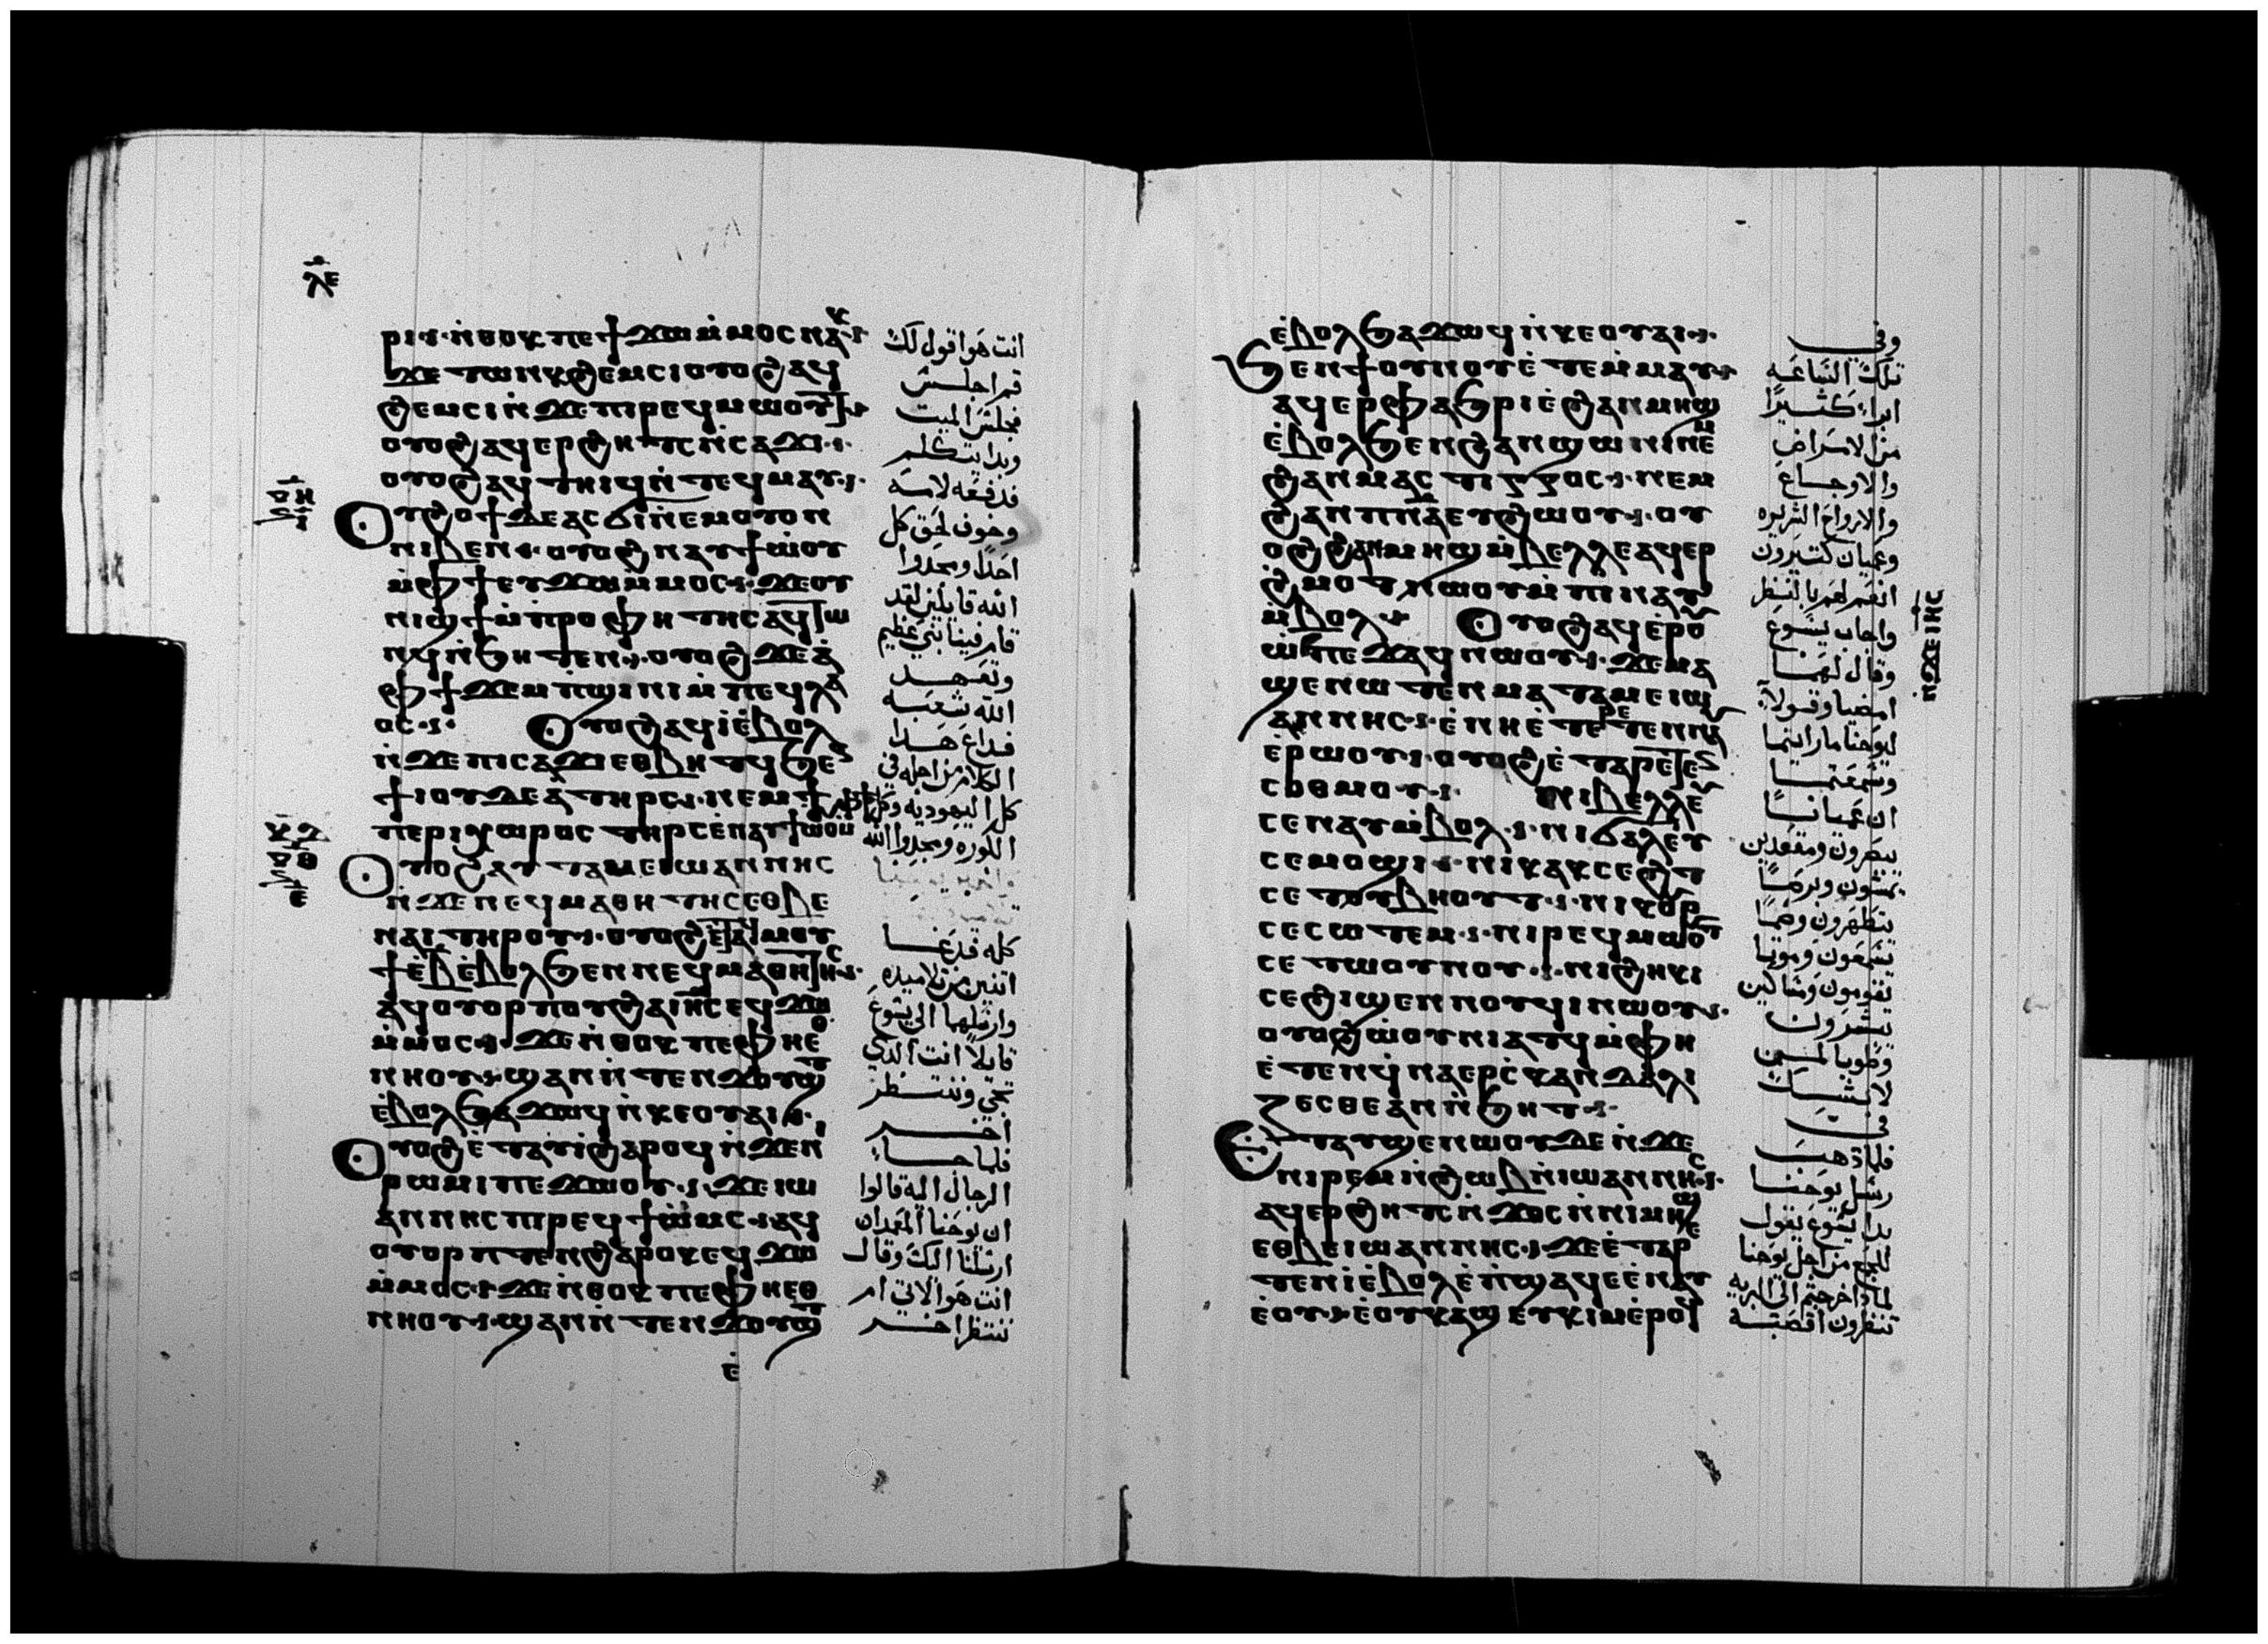 ⲗⲉ
ⲣⲓ ⲛ̇ⲑⲟⲕ ⲡⲉϯϫⲱ ⲙ̇ⲙⲟⲥ ⲛⲁⲕ
ϫⲉ ⲧⲱⲛⲕ ϩⲉⲙⲥⲓ ⲟⲩⲟϩ ⲁϥ
ϩⲉⲙⲥⲓ ⲛ̇ϫⲉ ⲡⲓⲣⲉϥⲙⲱⲟⲩⲧ
ⲟⲩⲟϩ ⲁϥⲉⲣϩⲏⲧⲥ ⲛ̇ⲥⲁϫⲓ
ⲟⲩⲟϩ ⲁϥⲧⲏⲓϥ ⲛ̇ⲧⲉϥⲙⲁⲩ
ⲟⲩϩⲟϯ ⲇⲉ ⲁⲥϭⲓ ⲛ̇ⲉⲙⲟⲩⲟⲛ
ⲛⲓⲃⲉⲛ ⲟⲩⲟϩ ⲛⲁⲩϯⲱ̇ⲟⲩ
ⲙ̇ⲫϯ ⲉⲩϫⲱ ⲙ̇ⲙⲟⲥ ϫⲉ ⲟⲩ
ⲛⲓϣϯ ⲙ̇ⲡⲣⲟⲫⲏⲧⲏⲥ ⲁϥⲧⲱ
ⲛϥ ⲛ̇ϧⲏⲧⲉⲛ ⲟⲩⲟϩ ϫⲉ ⲁ̇
ⲫϯ ϫⲉⲙⲡ̇ϣⲓⲛⲓ ⲙ̇ⲡⲉϥⲗⲁ
ⲟⲥ ⲟⲩⲟϩ ⲁϥⲓ̇ ⲉ̇ⲃⲟⲗ
ⲛ̇ϫⲉ ⲡⲓⲥⲁϫⲓ ⲉⲑⲃⲏⲧϥ ϧⲉⲛ
ϯⲓⲟⲩⲇⲉⲁ ⲧⲏⲣⲥ ⲛⲉⲙ ϯ
ⲡⲉⲣⲓⲭⲱⲣⲟⲥ ⲧⲏⲣⲥ ⲉ̇ⲛⲁⲩϯⲱⲟⲩ
ⲟⲩⲟϩ ⲁⲩⲧⲁⲙⲉ ⲓⲱⲁⲛⲛⲏⲥ
ⲛ̇ϫⲉ ⲛⲉϥⲙⲁⲑⲏⲧⲏⲥ ⲉⲑⲃⲉ
ⲛⲁⲓ ⲧⲏⲣⲟⲩ ⲟⲩⲟϩ ⲉⲧⲁϥⲙⲟⲩ
ϯ ⲉ̇ⲃ̅ ⲉ̇ⲃⲟⲗϧⲉⲛ ⲛⲉϥⲙⲁⲑⲏⲧⲏⲥ
ⲁϥⲟⲩⲟⲣⲡⲟⲩ ϩⲁ ⲓⲏⲥ ⲉϥϫⲱ
ⲙ̇ⲙⲟⲥ ϫⲉ ⲛ̇ⲑⲟⲕ ⲡⲉ ⲫⲏⲉⲑ
ⲛⲏⲟⲩ ϣⲁⲛ ⲛ̇ⲧⲉⲛϫⲟⲩϣⲧ
ⲉ̇ⲃⲟⲗϧⲁϫⲱϥ ⲛ̇ⲕⲉⲟⲩⲁⲓ
ⲟⲩⲟϩ ⲉ̇ⲧⲁⲩⲓ̇ ϩⲁⲣⲟϥ ⲛ̇ϫⲉ ⲛⲓ
ⲣⲱⲙⲓ ⲡⲉϫⲱⲟⲩ ϫⲉ ⲓⲱ
ⲁⲛⲛⲏⲥ ⲡⲓⲣⲉϥϯⲱ̇ⲙⲥ ⲁϥ
ⲟⲩⲟⲣⲡⲧⲉⲛ ϩⲁⲣⲟⲕ ⲉϥϫⲱ
ⲙ̇ⲙⲟⲥ ϫⲉ ⲛ̇ⲑⲟⲕ ⲡⲉ ⲫⲏⲉⲑ
ⲛⲏⲟⲩ ϣⲁⲛ ⲛ̇ⲧⲉⲛϫⲟⲩϣⲧ
ⲉ̇
انت هو اقول لك
قم اجلس
فجلس الميت
وبدا يتكلم
فدفعه لامه
وخوف لحق كل
احدا ومجدوا
الله قايلين لقد
قام فينا نبي عظيم
وتعهد
الله شعبه
فداع هدا
الكلام من اجله في
كل اليهوديه وكل
الكوره ومجدوا الله
كله فدعا
اتنين من تلاميده
وارسلهما الى يسوع
قايلا انت الدي
تجي وننتظر
اخر
فلما جا
الرجال اليه قالوا
ان يوحنا المعمدان
ارسلنا اليك وقال
انت هو الاتي ام
ننتظر اخر
ⲉ̇ⲃⲟⲗϧⲁϫⲱϥ ⲛ̇ⲕⲉⲟⲩⲁⲓ
ϧⲉⲛ ϯⲟⲩⲛⲟⲩ ⲉ̇ⲧⲉⲙ̇ⲙⲁⲩ
ⲁϥⲉⲣⲫⲁϧⲣⲓ ⲉ̇ϩⲁⲛⲙⲏϣ
ⲉ̇ⲃⲟⲗϧⲉⲛ ϩⲁⲛϣⲱⲛⲓ ⲛⲉⲙ
ϩⲁⲛⲙⲁⲥⲧⲓⲅⲅⲟⲥ ⲛⲉⲙ
ϩⲁⲛⲡⲛⲁ ⲉⲩϩⲱⲟⲩ ⲟⲩ
ⲟϩ ϩⲁⲛⲙⲏϣ ⲙ̇ⲃⲉⲗⲗⲉ ⲁϥⲉⲣ
ϩ̇ⲙⲟⲧ ⲛⲱⲟⲩ ⲙ̇ⲡⲓⲛⲁⲩ
ⲙ̇ⲃⲟⲗ ⲟⲩⲟϩ ⲁϥⲉ̇ⲣⲟⲩ
ⲱ̇ ⲡⲉϫⲁϥ ⲛⲱⲟⲩ ϫⲉ ⲙⲁ
ϣⲉⲛⲱⲧⲉⲛ ⲙⲁⲧⲁⲙⲉ ⲓⲱ
ⲁⲛⲛⲏⲥ ⲉ̇ⲛⲏⲉ̇ⲧⲉⲣⲉⲧⲉⲛⲛⲁⲩ
ⲉ̇ⲣⲱⲟⲩ ⲟⲩⲟϩ ⲉ̇ⲧⲁⲣⲉⲧⲉⲛ
ⲥⲟⲑⲙⲟⲩ ⲛⲓⲃⲉⲗⲗⲉⲩ
ⲥⲉⲛⲁⲩ ⲙ̇ⲃⲟⲗ ⲛⲓϭⲁⲗⲉⲩ
ⲥⲉⲙⲟϣⲓ ⲛⲓⲕⲁⲕⲥⲉϩⲧ
ⲥⲉⲧⲟⲩⲃⲏⲟⲩⲧ ⲛⲓⲕⲟⲩⲣ
ⲥⲉⲥⲱⲧⲉⲙ ⲛⲓⲣⲉϥⲙⲱⲟⲩⲧ
ⲥⲉⲧⲱⲟⲩⲛⲟⲩ ⲛⲓϩⲏⲕⲓ
ⲥⲉϩⲓϣⲉⲛⲛⲟⲩϥⲓ ⲛⲱⲟⲩ
ⲟⲩⲟϩ ⲱ̇ⲟⲩⲛⲓⲁⲧϥ ⲙ̇ⲫⲏ
ⲉ̇ⲧⲉⲛϥ̇ⲛⲁⲉⲣⲥ̇ⲕⲁⲛⲇⲁⲗⲓ
ⲍⲉⲥⲑⲉ ⲁⲛ ⲛ̇ϧⲏⲧ
ⲉⲧⲁⲩϣⲉⲛⲱⲟⲩ ⲇⲉ ⲛ̇ϫⲉ
ⲛⲓⲣⲉⲙⲛ̇ϩⲱⲃ ⲛ̇ⲓⲱⲁⲛⲛⲏⲥ
ⲁϥⲉⲣϩⲏⲧⲥ ⲛ̇ϫⲟⲥ ⲛ̇ⲛⲓⲙⲏϣ
ⲉⲑⲃⲉ ⲓⲱⲁⲛⲛⲏⲥ ϫⲉ ⲉ̇ⲧⲁⲣⲉ
ⲧⲉⲛⲓ̇ ⲉ̇ⲃⲟⲗ ⲉ̇ⲡ̇ϣⲁϥⲉ ⲉ̇ⲛⲁⲩ
ⲉ̇ⲟⲩ ⲉ̇ⲟⲩⲕⲁϣ ⲉⲩⲕⲓⲙ ⲉ̇ⲣⲟϥ
وفي
تلك الساعه
ابرا كثيرا
من الامراض
والاوجاع
والارواح الشريره
وعميان كتيرون
انعم لهم بالنظر
واجاب يسوع
وقال لهما
امضيا وقولا
ليوحنا ما رايتما
وسمعتما
ان عميانا
يبصرون ومقعدين
يمشون وبرصا
يتطهرون وصما
يسمعون وموتا
يقومون ومساكين
يبشرون
وطوبا لمن
لا يشك
في
فلما دهب
رسل يوحنا
بدا يسوع يقول
للجمع من اجل يوحنا
لمادا خرجتم الى البريه
تنظرون اقصبه